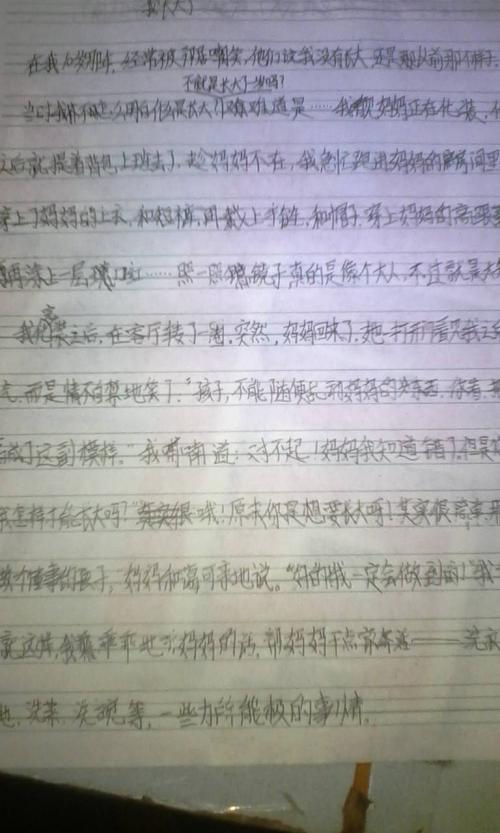 我长大了
在我 岁那年,经常被邻居嘲笑,他们说我没有长大,还是跟以前那个样子,
不就是长大了一岁吗?
当时我什么明白什么是长大,难道是……我 妈妈正在化装,
之后就提着背包上班去了,趁妈妈不在,我急忙跑进妈妈的房间里
穿上了妈妈的上衣,和短裤,再戴上手链,和帽子,穿上妈妈的高
再涂上一层 口红……照一照镜子真的是像个大人,不
我 完之后,在客厅转了一圈,突然,妈妈回来了,她一打开 看见我
气,而是情不自禁地笑了,“孩子,不能随便乱动妈妈的 东西,你看,
成了这副模样,”我 喃道:对不起!妈妈我知道错了,但是
我怎样才能长大吗?”哦!原来你是想要长大呀!其实很简单,
做个懂事的孩子,”妈妈和蔼可亲地说。“好的我一定会做到的!”
就这样,我 乖乖地听妈妈的话,帮妈妈干点家务活——
地,洗菜,洗碗等,一些力所能极的事情。